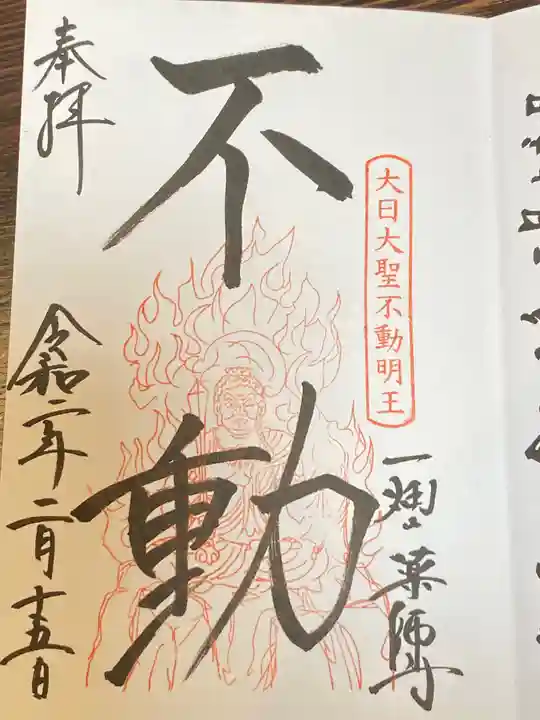 大日大聖不動明王
奉拝
不動
令和二年二月十五日
薬師尊